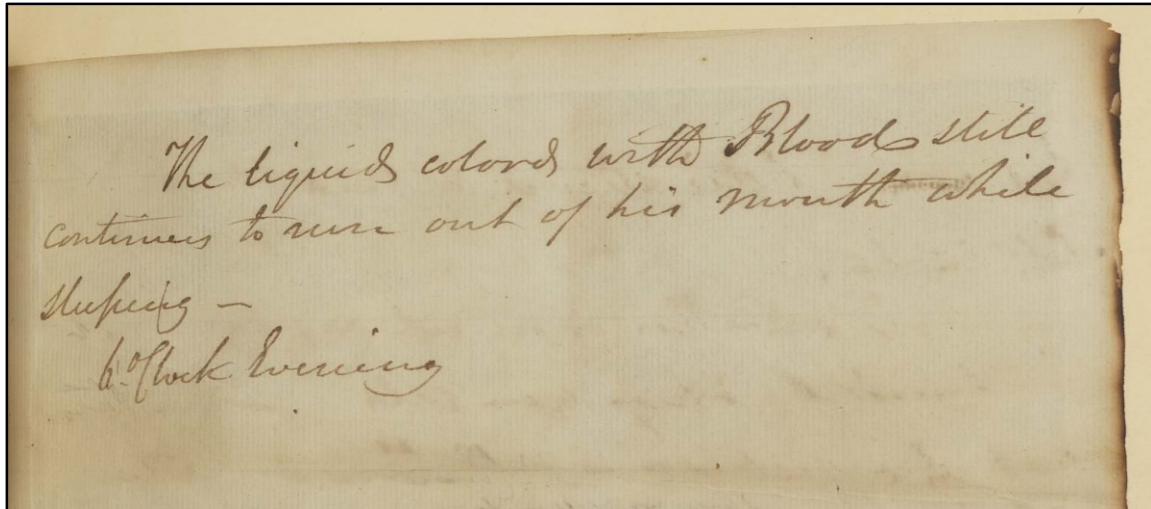 The liquid colord with Blood still
continues to run out of his mouth while
sleeping —
6 oClock Evening